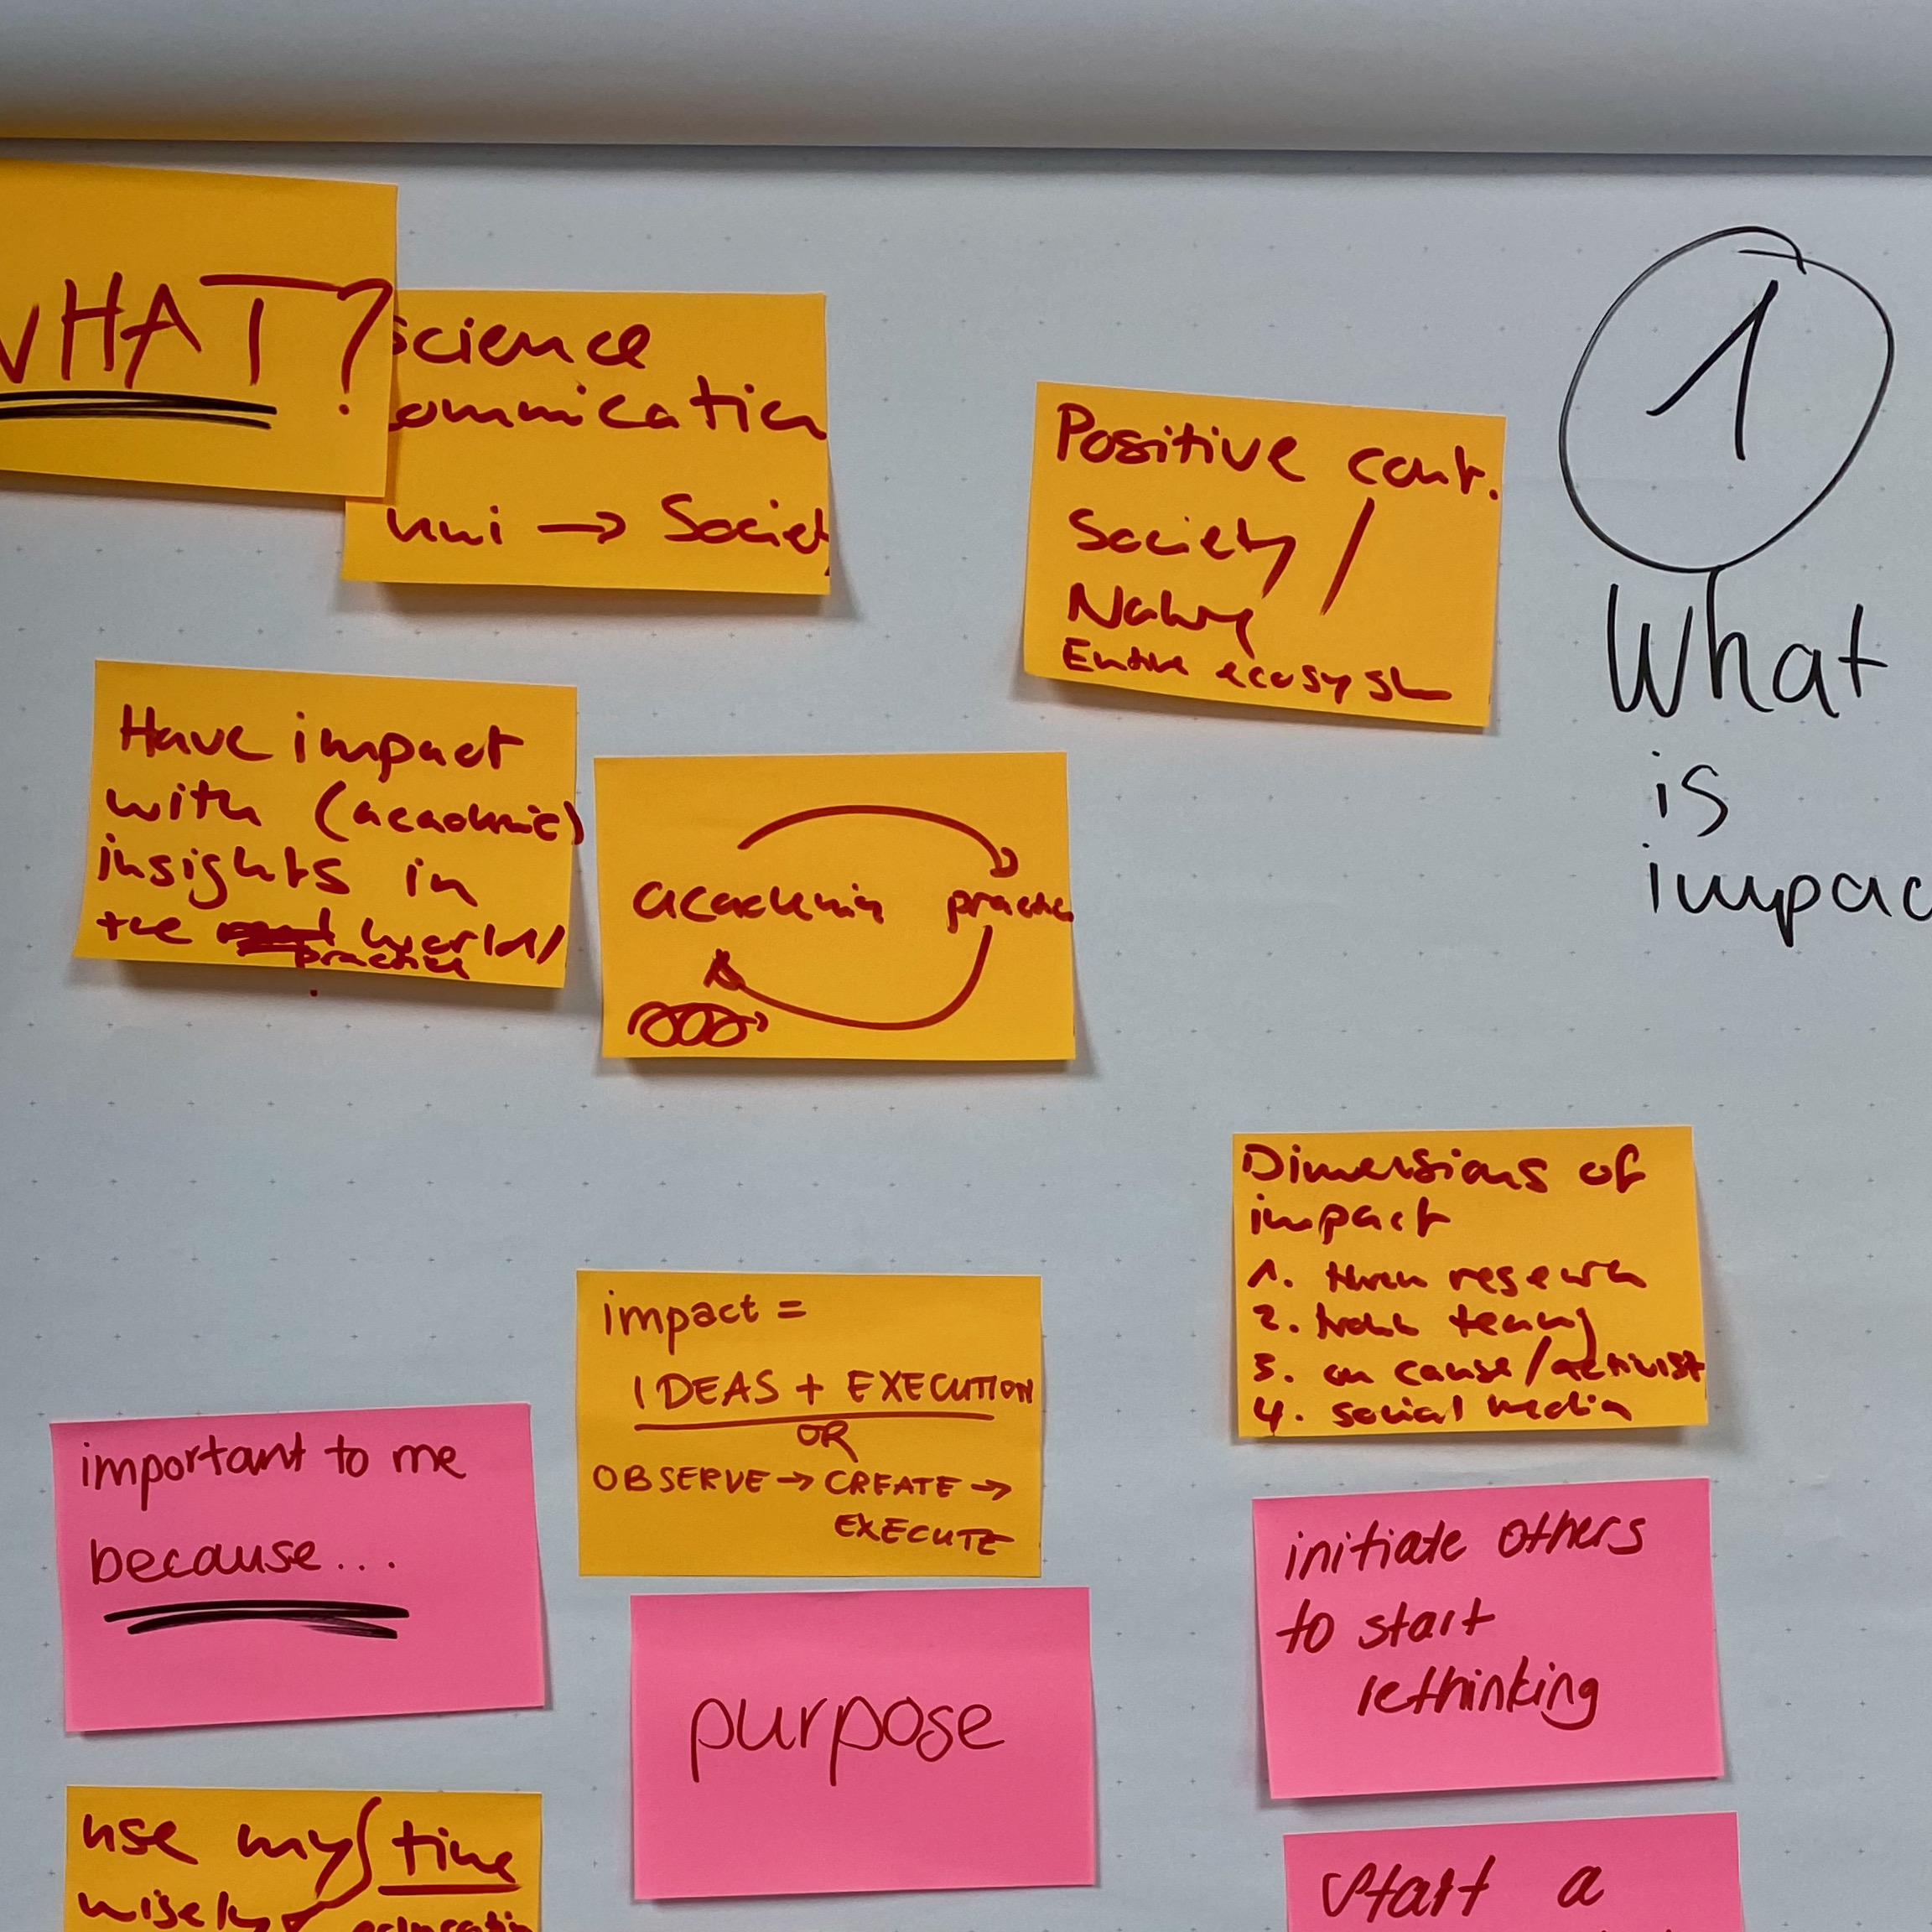 WHAT?
science
ommunication
uni → Society
Positive cont.
Society /
Nature
Entire ecosyst
1
What
is
impac
Have impact
with (academic)
insights in
the world/
practice
academia practice
Dimensions of
impact
1. research
2. teaching
3. on cause/activist
4. social media
impact =
IDEAS + EXECUTION
OR
OBSERVE → CREATE →
EXECUTE
important to me
because...
purpose
initiate others
to start
rethinking
use my time
wisely
start a